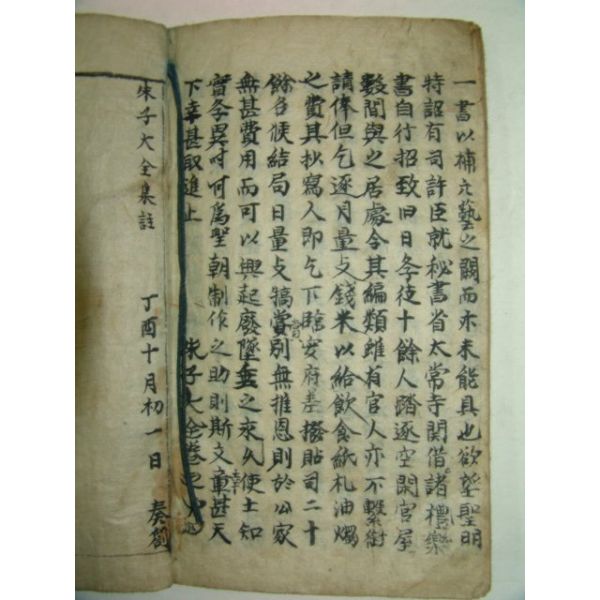 一書以補六藝之闕而亦未能具也欲望聖明
特詔有司許臣就秘書省太常寺関借諸禮樂
書自行招致旧日斈徒十餘人踏逐空閑官屋
數間與之居處令其編類雖有官人亦不繫銜
請俸但乞逐月量支錢米以給飲食紙札油燭
之費其抄寫人即乞下臨安府差撥貼司二十
餘名候結局日量支犒賞別無推恩則於公家
賞
無甚費用而可以興起廢墜垂之永久使士知
幸
實斈異時可爲聖朝制作之助則斯文章甚天
下幸甚取進止 朱子大全卷之
朱子大全集註 丁酉十月初一日 奏劄